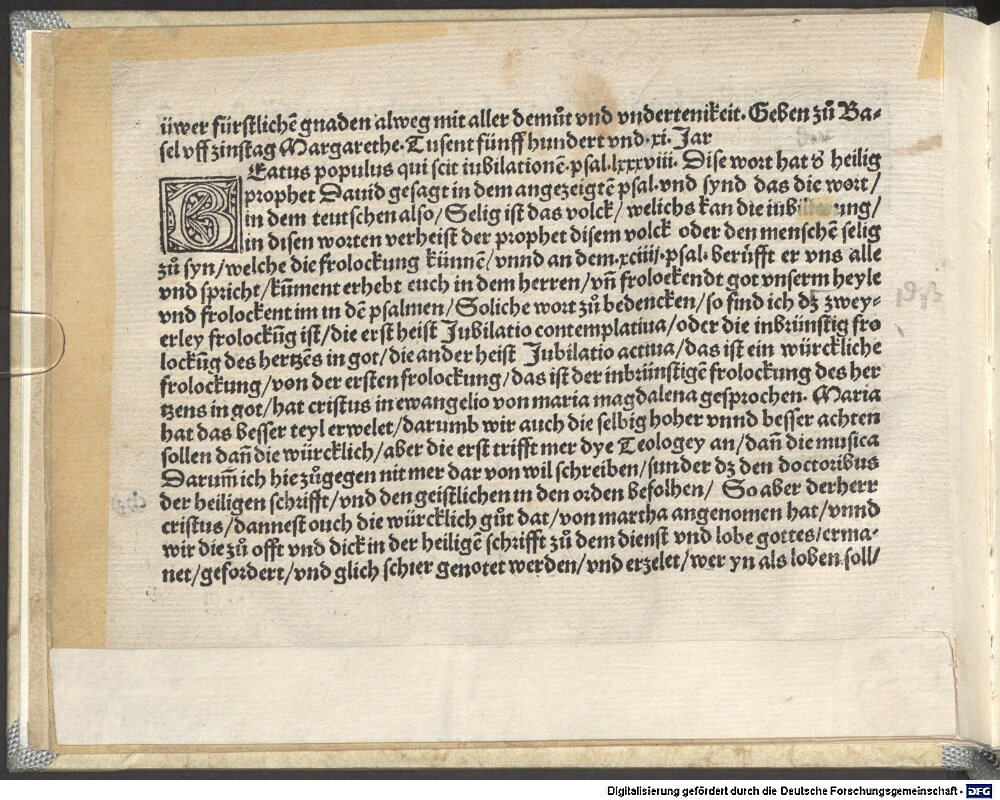 üwer fürstlichē gnaden alweg mit aller demůt vnd vndertenikeit. Geben zů Ba-
sel vff zinstag Margarethe. Tusent fünff hundert vnd .xi. Jar
BEatus populus qui scit iubilationē. psal. lxxxviii. Dise wort hat d' heilig
prophet Dauid gesagt in dem angezeigtē psal. vnd synd das die wort/
in dem teutschen also/ Selig ist das volck/ welichs kan die iubilierung/
in disen worten verheist der prophet disem volck oder den menschē selig
zů syn/ welche die frolockung künnē/ vnnd an dem .xciiij. psal. berůfft er vns alle
vnd spricht/ kum̄ent erhebt euch in dem herren/ vn̄ frolockendt got vnserm heyle
vnd frolockent im in dē psalmen/ Soliche wort zů bedencken/ so find ich dz zwey-
erley frolockūg ist/ die erst heist Jubilatio contemplatiua/ oder die inbrünstig fro
lockūg des hertzēs in got/ die ander heist Jubilatio actiua/ das ist ein würckliche
frolockung/ von der ersten frolockung/ das ist der inbrünstigē frolockung des her
tzens in got/ hat cristus in ewangelio von maria magdalena gesprochen. Maria
hat das besser teyl erwelet/ darumb wir auch die selbig hoher vnnd besser achten
sollen dan̄ die würcklich/ aber die erst trifft mer dye Teologey an/ dan̄ die musica
Darum̄ ich hie zůgegen nit mer dar von wil schreiben/ sunder dz den doctoribus
der heiligen schrifft/ vnd den geistlichen in den orden befolhen/ So aber der herr
cristus/ dannest ouch die würcklich gůt dat/ von martha angenomen hat/ vnnd
wir die zů offt vnd dick in der heiligē schrifft zů dem dienst vnd lobe gottes/ erma-
net/ gefordert/ vnd glich schier genotet werden/ vnd erzelet/ wer yn als loben soll/
Digitalisierung gefördert durch die Deutsche Forschungsgemeinschaft - DFG